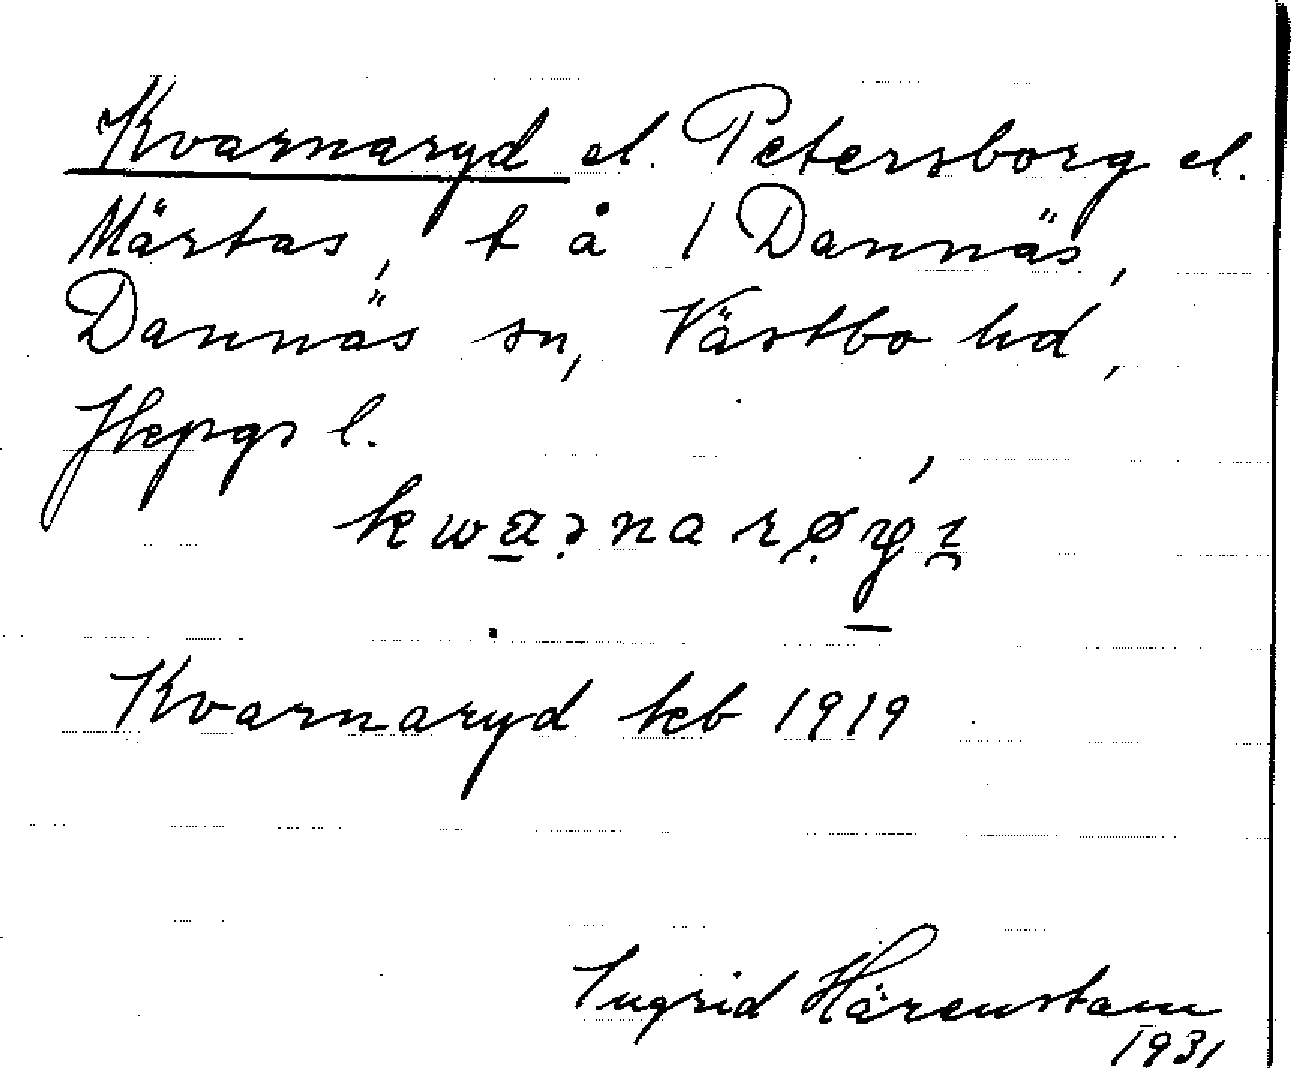 Kvarnaryd el. Petersborg el.
Märtas, t å 1 Dannäs,
Dannäs sn, Västbo hd,
Jkpgs l.
Kvarnaryd kb 1919
Ingrid Härenstam
1931